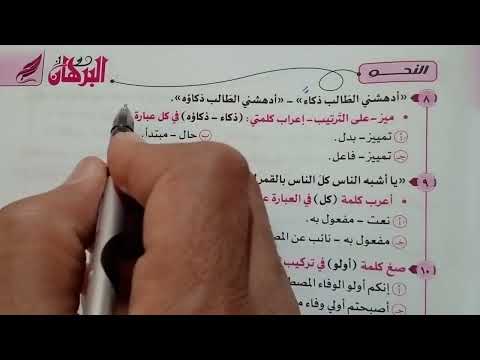 البرهان
النحو
٨ «أدهشني الطالب ذكاءً» – «أدهشني الطالب ذكاؤه».
• ميز – على الترتيب – إعراب كلمتي: (ذكاء – ذكاؤه) في كل عبارة
أ تمييز – بدل.
ب حال – مبتدأ.
ج تمييز – فاعل.
٩ «يا أشبه الناس كل الناس بالقمر
• أعرب كلمة (كل) في العبارة
أ نعت – مفعول به.
ج مفعول به – نائب عن
١٠ صغ كلمة (أولو) في تركيب
أ إنكم أولو الوفاء
ج أصبحتم أولي وفاء